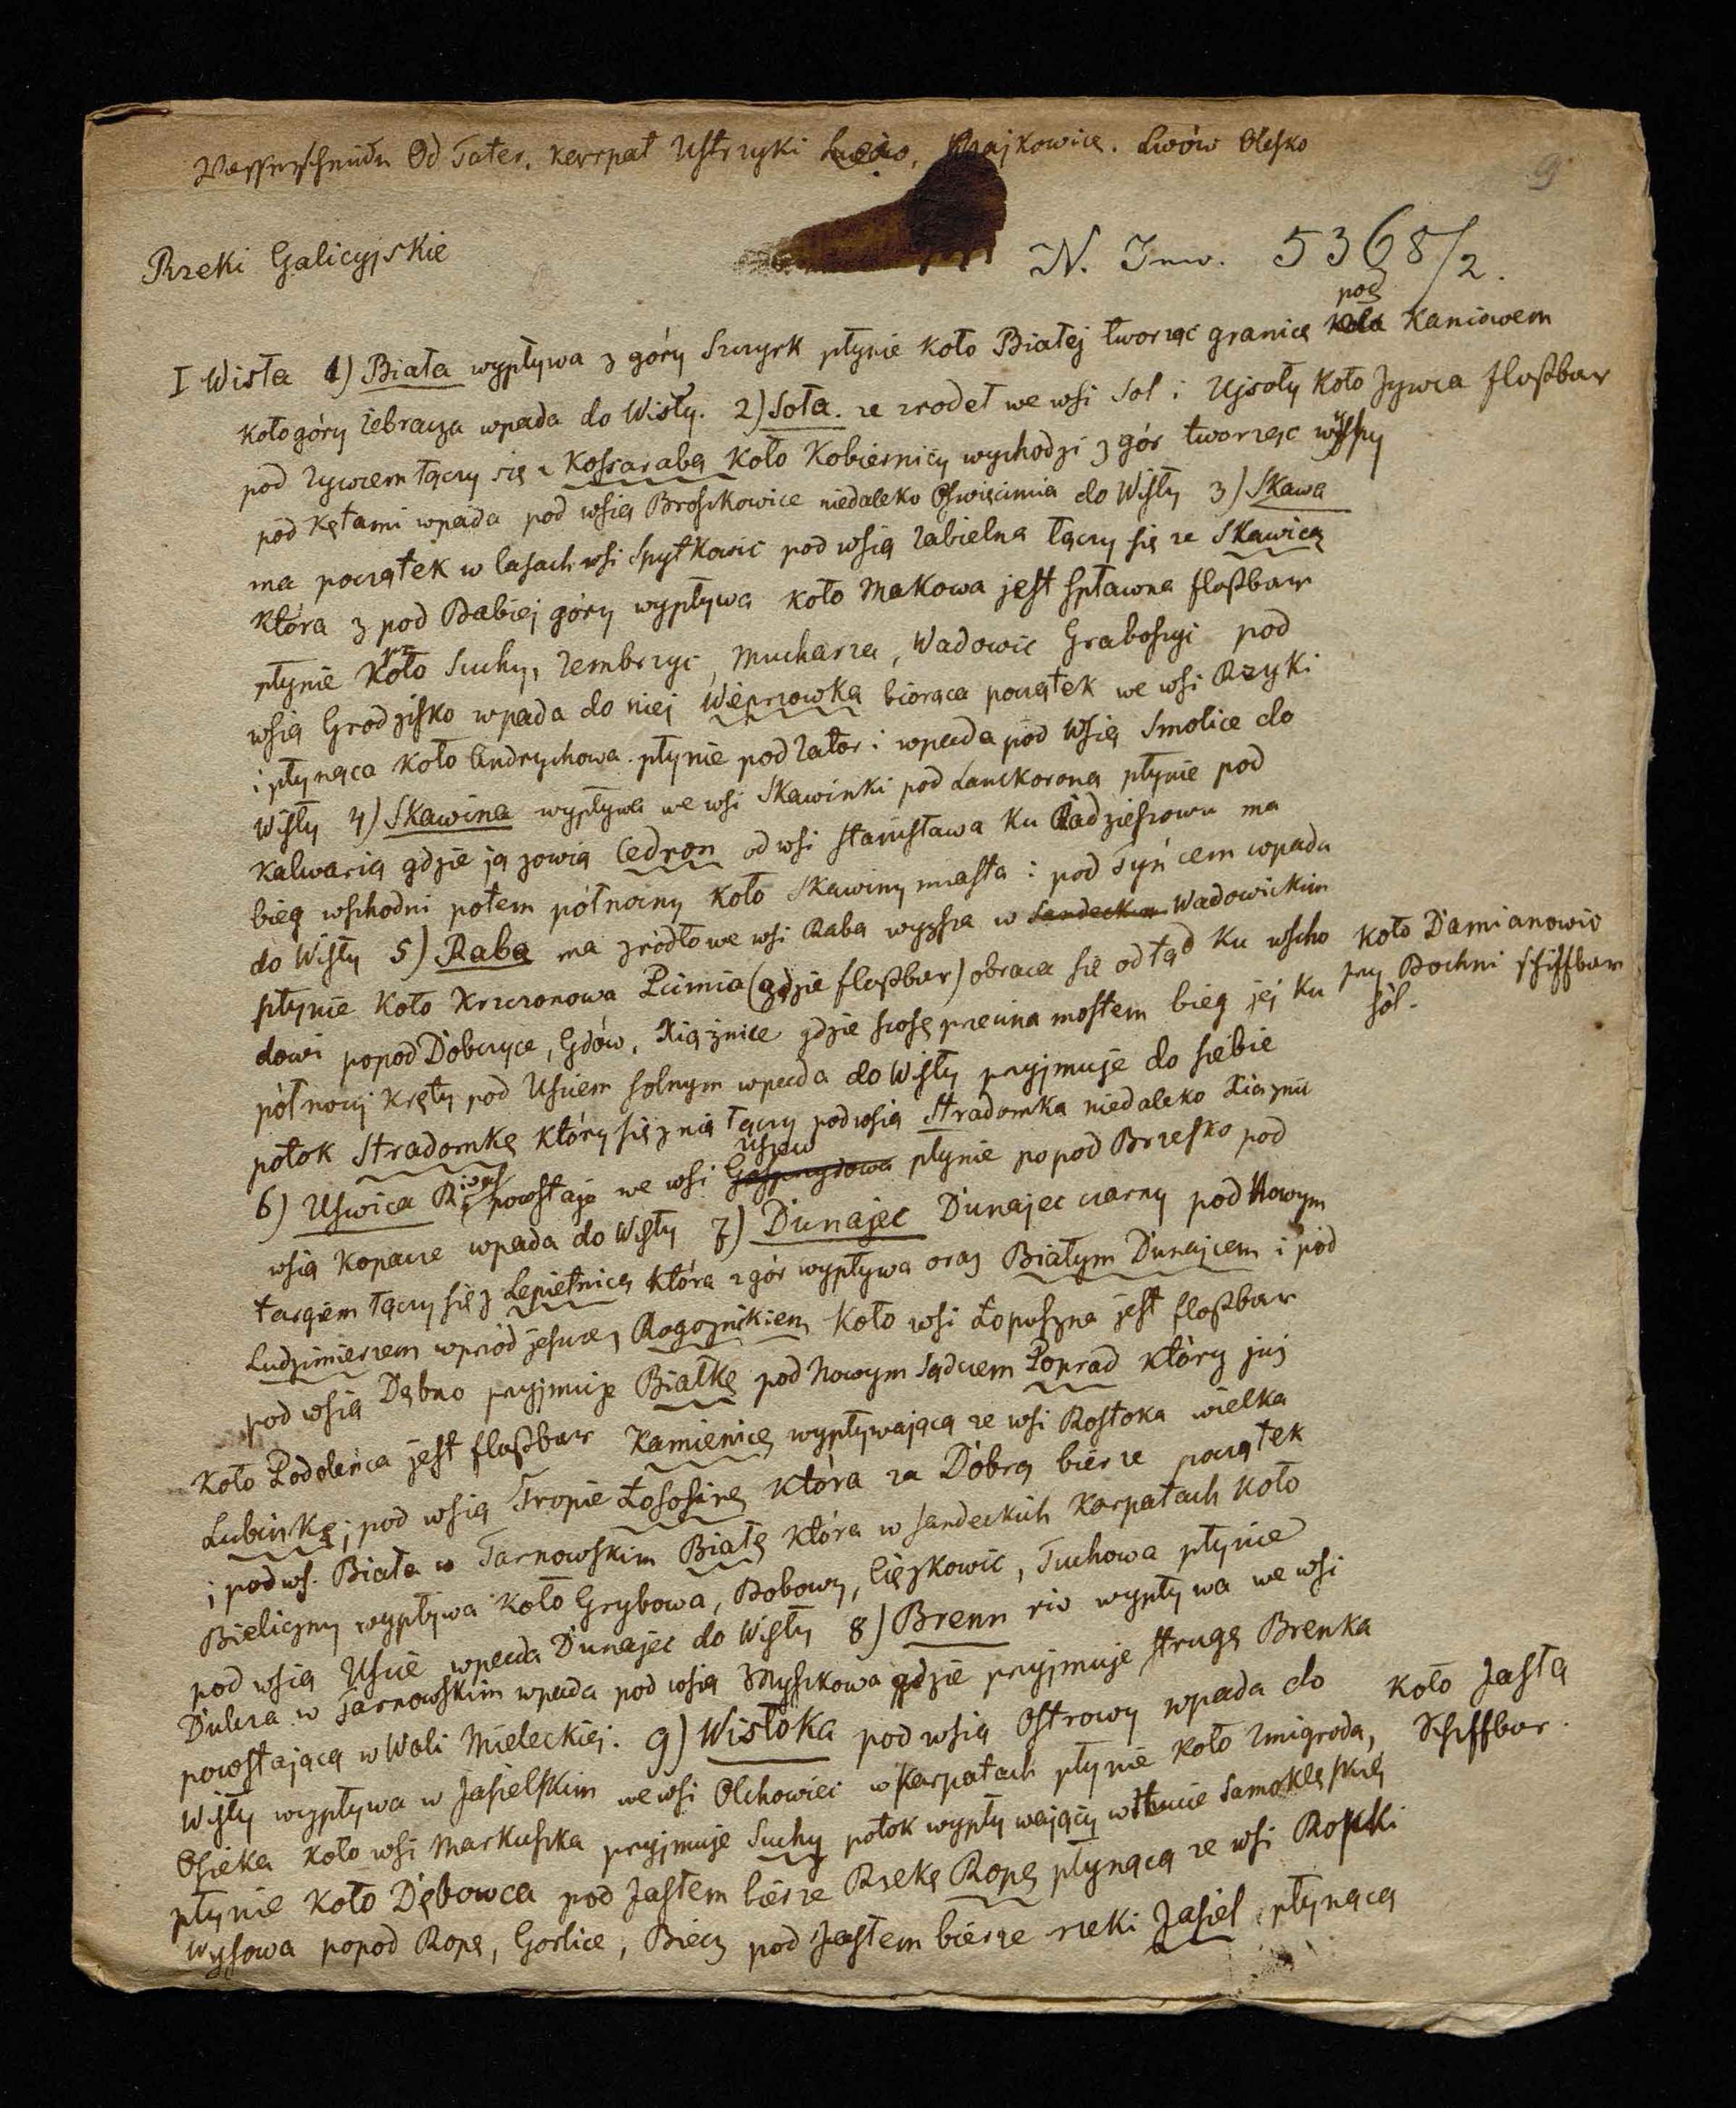 Wasserscheide Od Tater, karpat Ustrzyki Krajkowice. Lwów Olesko
9
Rzeki Galicyjskie
N. Inw. 5368/2.
pod
I Wisła 1) Biała wypływa z góry Szczyrk płynie koło Białej tworząc granicę koło Kaniowem
koło góry Żebracza wpada do Wisły. 2) Soła. ze zrodeł we wsi Sol i Ujsoły koło Żywca floßbar
pod Zywcem łączy się z Koszarabą koło Kobiernicy wychodzi z gór tworząc wyspy
pod Kętami wpada pod wsią Broszkowice niedaleko Oświęcimia do Wisły 3) Skawa
ma początek w lasach wsi Spytkowic pod wsią Zabielna łączy się ze Skawicą
która z pod Babiej góry wypływa koło Makowa jest spławna floßbar
płynie koło Suchy, Zembrzyc, Mucharza, Wadowic Graboszyc pod
wsią Grodzisko wpada do niej Wieprzowka biorąca początek we wsi Rzyki
i płynąca koło Andrychowa. płynie pod Zator i wpada pod wsią Smolice do
Wisły 4) Skawina wypływa we wsi Skawinki pod Lanckoroną płynie pod
Kalwarią gdzie ją zowią Cedron od wsi Stanisława ku Radzieszowu ma
bieg wschodni potem północny koło Skawiny miasta i pod Tyńcem wpada
do Wisły 5) Raba ma zródło we wsi Raba wyzsza w Sandeckim Wadowickim
płynie koło Krzczonowa Pcimia (gdzie floßbar) obraca się odtąd ku wscho koło Damianowic
dowi popod Dobczyce, Gdów, Xiążnice gdzie szosę przecina mostem bieg jej ku przy Bochni schiffbar
sól.
północy kręty pod Usciem solnym wpada do Wisły przyjmuje do siebie
potok Stradomkę który się z nią łączy pod wsią Stradomka niedaleko Xiąznic
Uszew
6) Uswica powstaje we wsi płynie popod Brzesko pod
wsią Kopacze wpada do Wisły 7) Dunajec Dunajec czarny pod Nowym
targiem łączy się z Lepietnicą która z gór wypływa oraz Białym Dunajcem i pod
Ludzimierzem wprzód jeszcze z Rogoznikiem koło wsi Łopuszna jest floßbar
pod wsią Dębno przyjmuje Białkę pod Nowym Sądczem Poprad który już
koło Podolenca jest floßbar Kamienicę wypływającą ze wsi Rostoka wielka
Lubinkę; pod wsią Tropie Łososinę która za Dobrą bierze początek
i pod ws. Biała w Tarnowskim Białę która w sandeckich Karpatach koło
Bieliczny wypływa koło Grybowa, Bobowy, Ciężkowic, Tuchowa płynie
pod wsią Uscie wpada Dunajec do Wisły 8) Brenn riv wypływa we wsi
Dulcza w Tarnowskim wpada pod wsią Zmyszkowa gdzie przyjmuje strugę Brenka
powstającą w Woli Mieleckiej. 9) Wisłoka pod wsią Ostrowy wpada do koło Jasła
Wisły wypływa w Jasielskim we wsi Olchowiec w Karpatach płynie koło Zmigroda, Schiffbar.
Osieka koło wsi Markuszka przyjmuje Suchy potok wypływający w Samoklęskię
płynie koło Dębowca pod Jasłem bierze Rzekę Ropę płynącą ze wsi Ropki
Wysowa popod Ropę, Gorlice, Biecz pod Jasłem bierze rzeki Jasiel płynącą